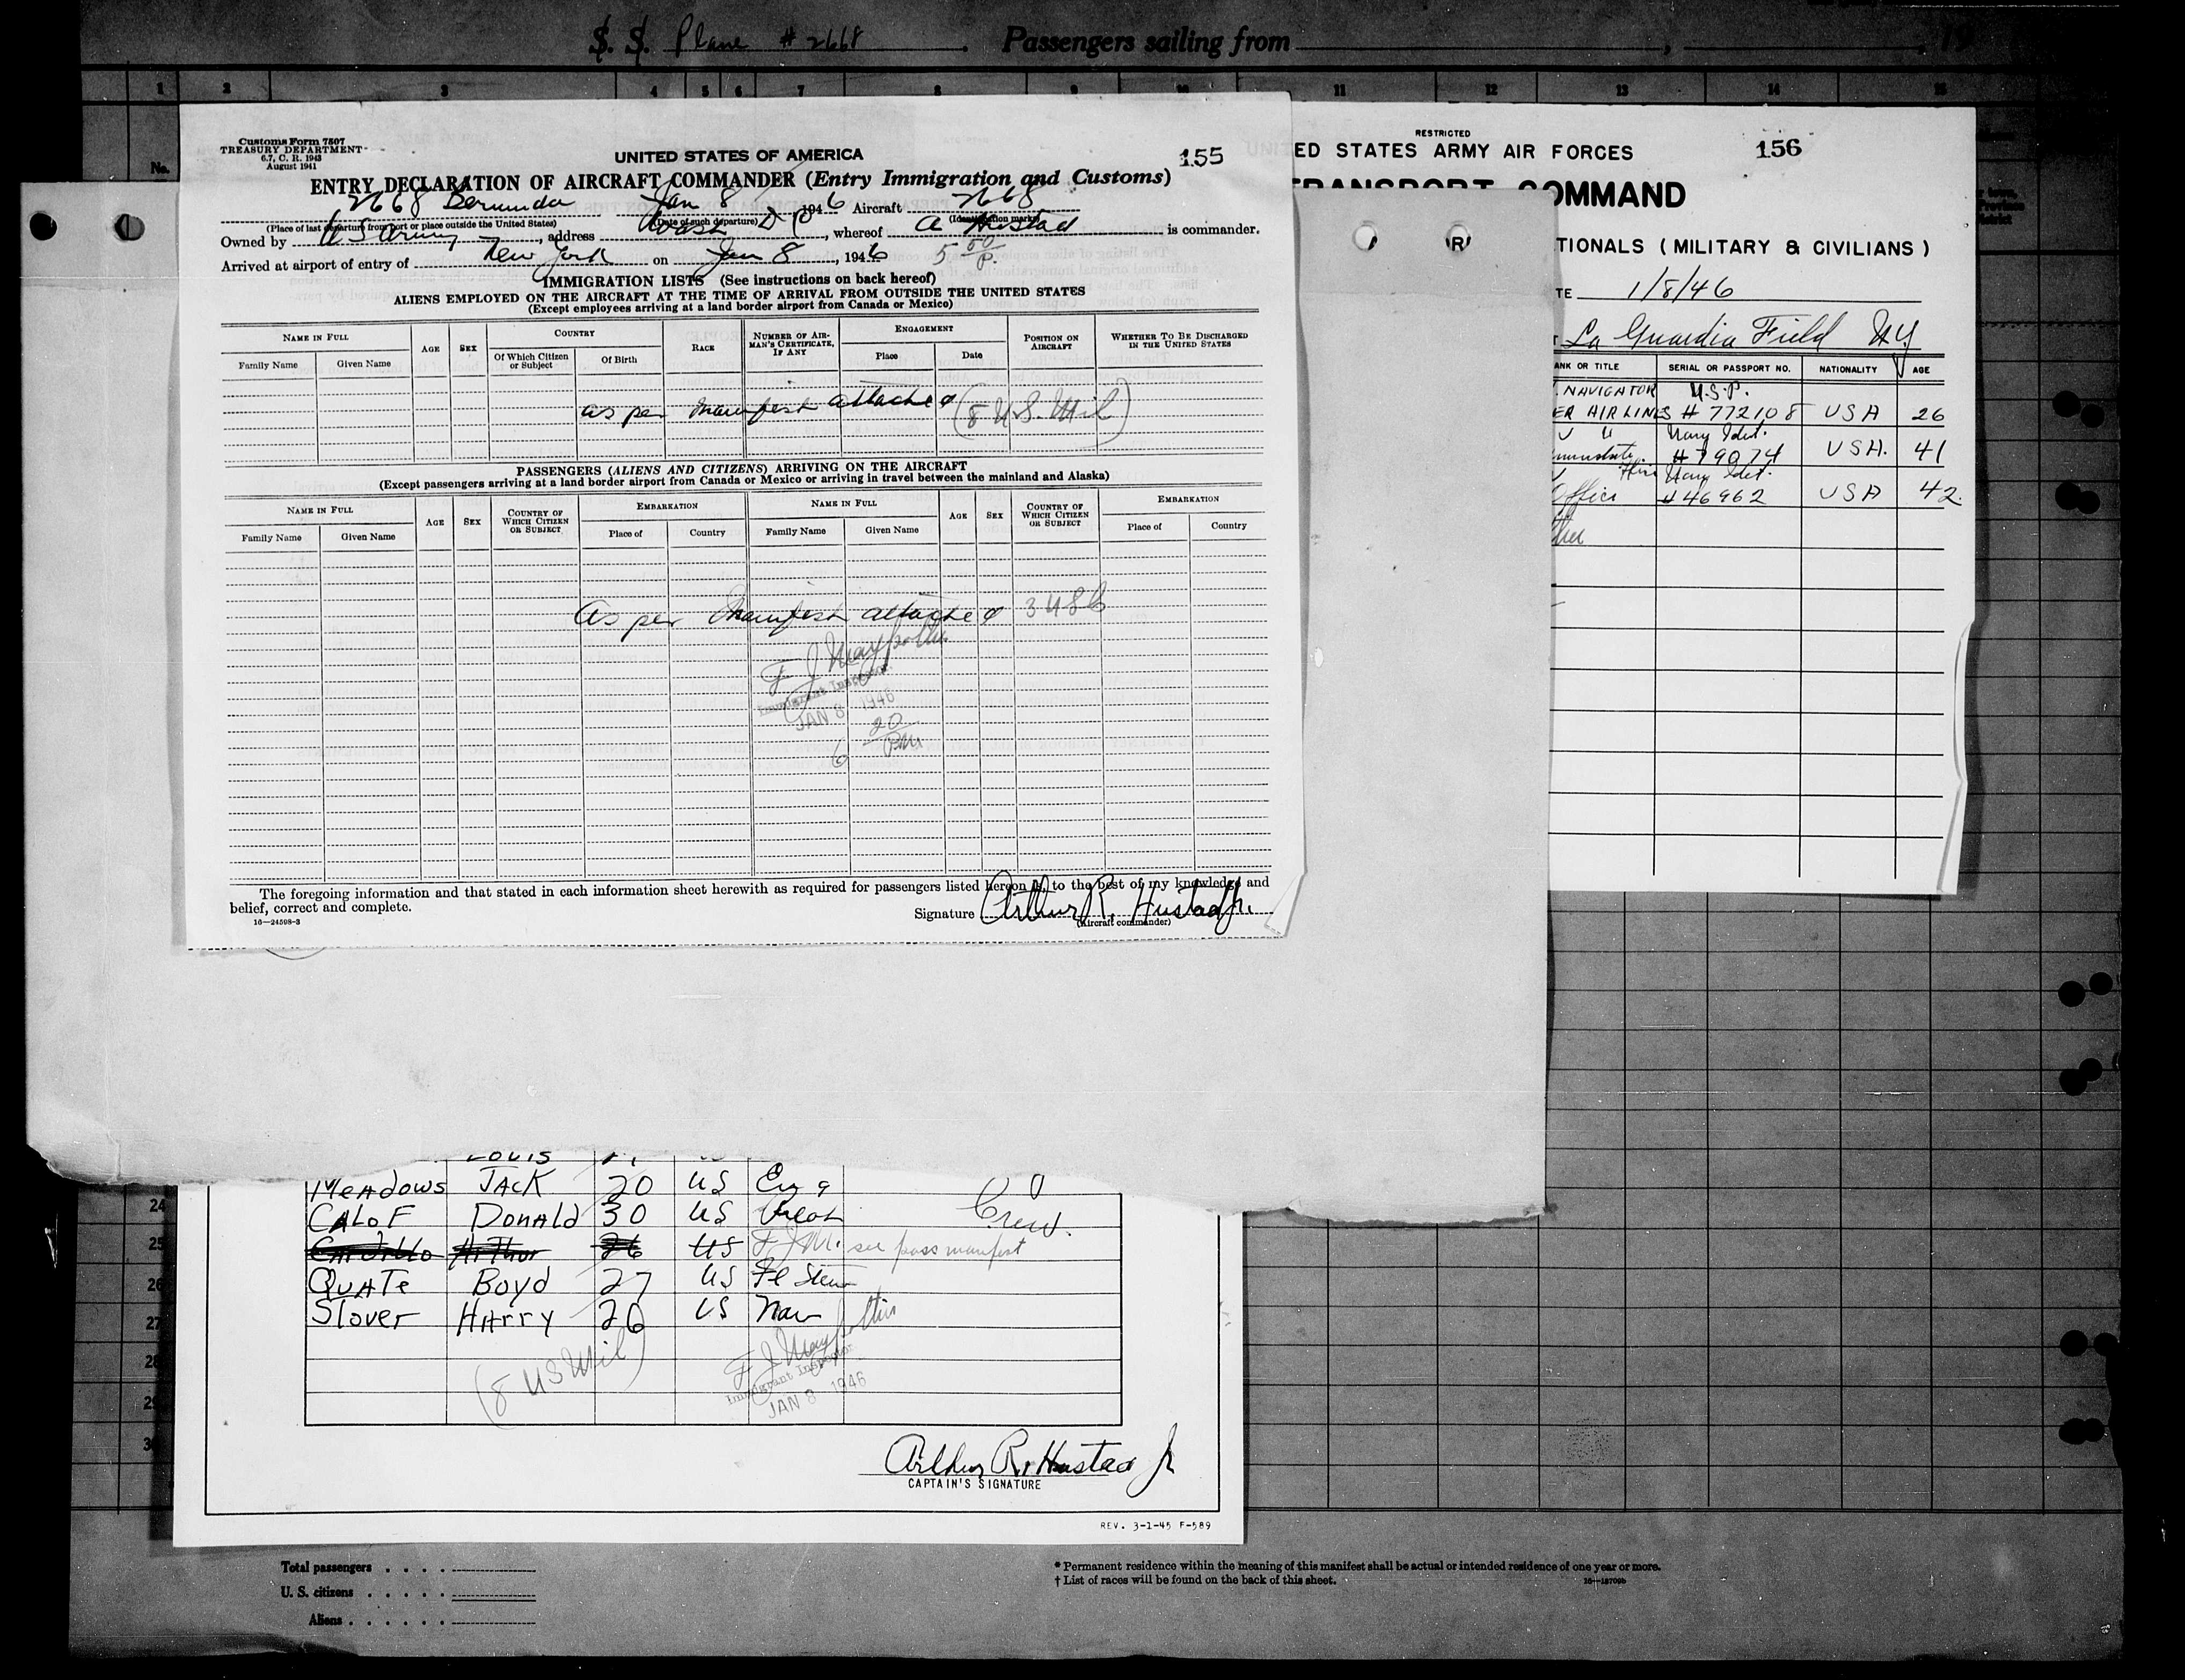 S. S. Plane # 2668. Passengers sailing from , , 19
1 2 3 4 5 6 7 8 9 10 11 12 13 14 15
No.
Customs Form 7507
TREASURY DEPARTMENT
6.7, C. R. 1943
August 1941
155
UNITED STATES OF AMERICA
ENTRY DECLARATION OF AIRCRAFT COMMANDER (Entry Immigration and Customs)
2668 Bermuda Jan 8, 1946 Aircraft 2668
(Place of last departure from port or place outside the United States) (Date of such departure) (Identification marks)
Owned by US Army, address Wash D C, whereof A Hustad is commander.
Arrived at airport of entry of New York on Jan 8, 1946 5 50 P.
IMMIGRATION LISTS (See instructions on back hereof)
ALIENS EMPLOYED ON THE AIRCRAFT AT THE TIME OF ARRIVAL FROM OUTSIDE THE UNITED STATES
(Except employees arriving at a land border airport from Canada or Mexico)
NAME IN FULL AGE SEX COUNTRY RACE NUMBER OF AIRMAN'S CERTIFICATE, IF ANY ENGAGEMENT POSITION ON AIRCRAFT WHETHER TO BE DISCHARGED IN THE UNITED STATES
Family Name Given Name Of Which Citizen or Subject Of Birth Place Date
as per manifest attached (8 U.S. Mil)
PASSENGERS (ALIENS AND CITIZENS) ARRIVING ON THE AIRCRAFT
(Except passengers arriving at a land border airport from Canada or Mexico or arriving in travel between the mainland and Alaska)
NAME IN FULL AGE SEX COUNTRY OF WHICH CITIZEN OR SUBJECT EMBARKATION NAME IN FULL AGE SEX COUNTRY OF WHICH CITIZEN OR SUBJECT EMBARKATION
Family Name Given Name Place of Country Family Name Given Name Place of Country
As per Manifest attached 3 USC
Immigrant Inspector
JAN 8 1946
6 20 PM
The foregoing information and that stated in each information sheet herewith as required for passengers listed hereon is, to the best of my knowledge and
belief, correct and complete.
Signature Arthur R. Hustad Jr.
(Aircraft commander)
16—24598-3
RESTRICTED
156
ED STATES ARMY AIR FORCES
TRANSPORT COMMAND
TIONALS (MILITARY & CIVILIANS)
TE 1/8/46
La Guardia Field NY
ANK OR TITLE SERIAL OR PASSPORT NO. NATIONALITY AGE
NAVIGATOR U.S.P.
ER AIRLINES # 772108 USA 26
Navy Ident.
# 79074 USA. 41
Navy Ident.
Office # 46962 USA 42.
LOUIS
MEADOWS JACK 20 US Eng
CALOF Donald 30 US
Crew.
Arthur 26 US F.J.M. see pass manifest
QUATE Boyd 27 US Fl Stew
Slover HArry 26 US Nav
(8 US Mil)
Immigrant Inspector
JAN 8 1946
Arthur R. Hustad Jr
CAPTAIN'S SIGNATURE
REV. 3-1-45 F-589
24
25
26
27
28
29
30
Total passengers
U. S. citizens
Aliens
* Permanent residence within the meaning of this manifest shall be actual or intended residence of one year or more.
† List of races will be found on the back of this sheet.